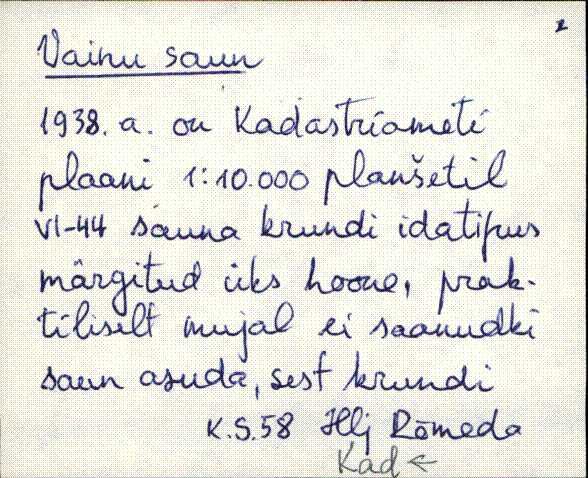 2
Vainu saun
1938. a. on Kadastriameti
plaani 1:10.000 planšetil
VI-44 sauna krundi idatipus
märgitud üks hoone, prak-
tiliselt mujal ei saanudki
saun asuda, sest krundi
K.S.58 Hlj Rõmeda
Kad ←